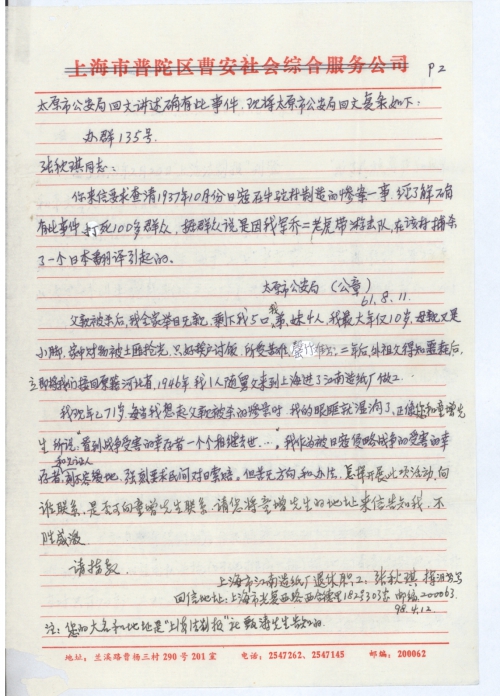 上海市普陀区曹安社会综合服务公司
P2
太原市公安局回文讲述确有此事件，现将太原市公安局回文复录如下：
办群135号
张秋琪同志：
你来信要求查清1937年10月份日寇在牛驼村制造的惨案一事，经了解不确
有此事件，打死100多群众，据群众说是因我军乔二老虎带游击队，在该村捕杀
了一个日本翻译引起的。
太原市公安局（公章）
61.8.11.
父亲被杀后，我全家举目无亲，剩下我5口，我弟、妹4人，我最大年仅10岁，母亲又是
小脚，家中财物被土匪抢光，只好挨户讨饭，所受苦难，二年后，外祖父得知噩耗后，
立即将我们接回原籍河北省，1946年我1人随舅父来到上海进了江南造纸厂做工
我现年已71岁，每当我想起父亲被杀的惨景时，我的眼眶就湿润了，正像你和童增先
生所说："看到战争受害的幸存者一个个相继去世…，我作为被日寇侵略战争的受害的幸
存者和见证人，刻不容缓地，强烈要求民间对日索赔，但苦无方向和办法，怎样开展此项活动，向
谁联系，是否可向童增先生联系，请您将童增先生的地址来信告知我，不
胜感激
请指教
上海市江南造纸厂退休职工，张秋琪
回信地址：上海市光复西路182号303室 邮编200063
98.4.12.
注：您的大名和地址是"上海法制报"社甄涛先生告知的.
地址：兰溪路曹杨三村290号201室 电话：2547262、2547145 邮编：200062